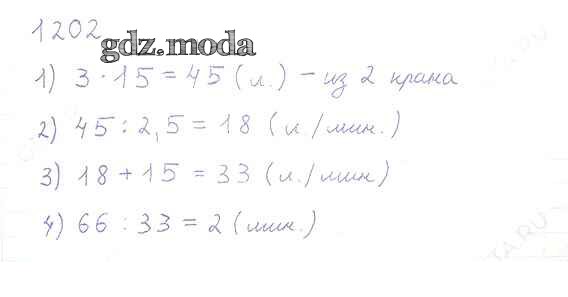 1202
gdz.moda
1) 3 · 15 = 45 (л.) – из 2 крана
2) 45 : 2,5 = 18 (л/мин.)
3) 18 + 15 = 33 (л./мин)
4) 66 : 33 = 2 (мин.)